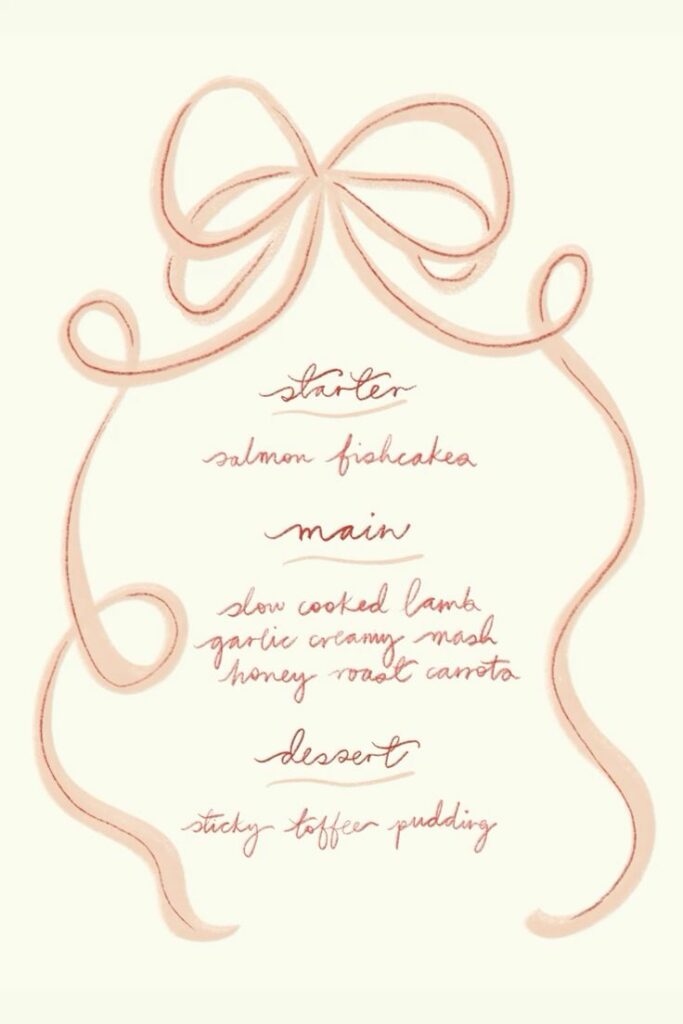 starter
salmon fishcakes
main
slow cooked lamb
garlic creamy mash
honey roast carrots
dessert
sticky toffee pudding